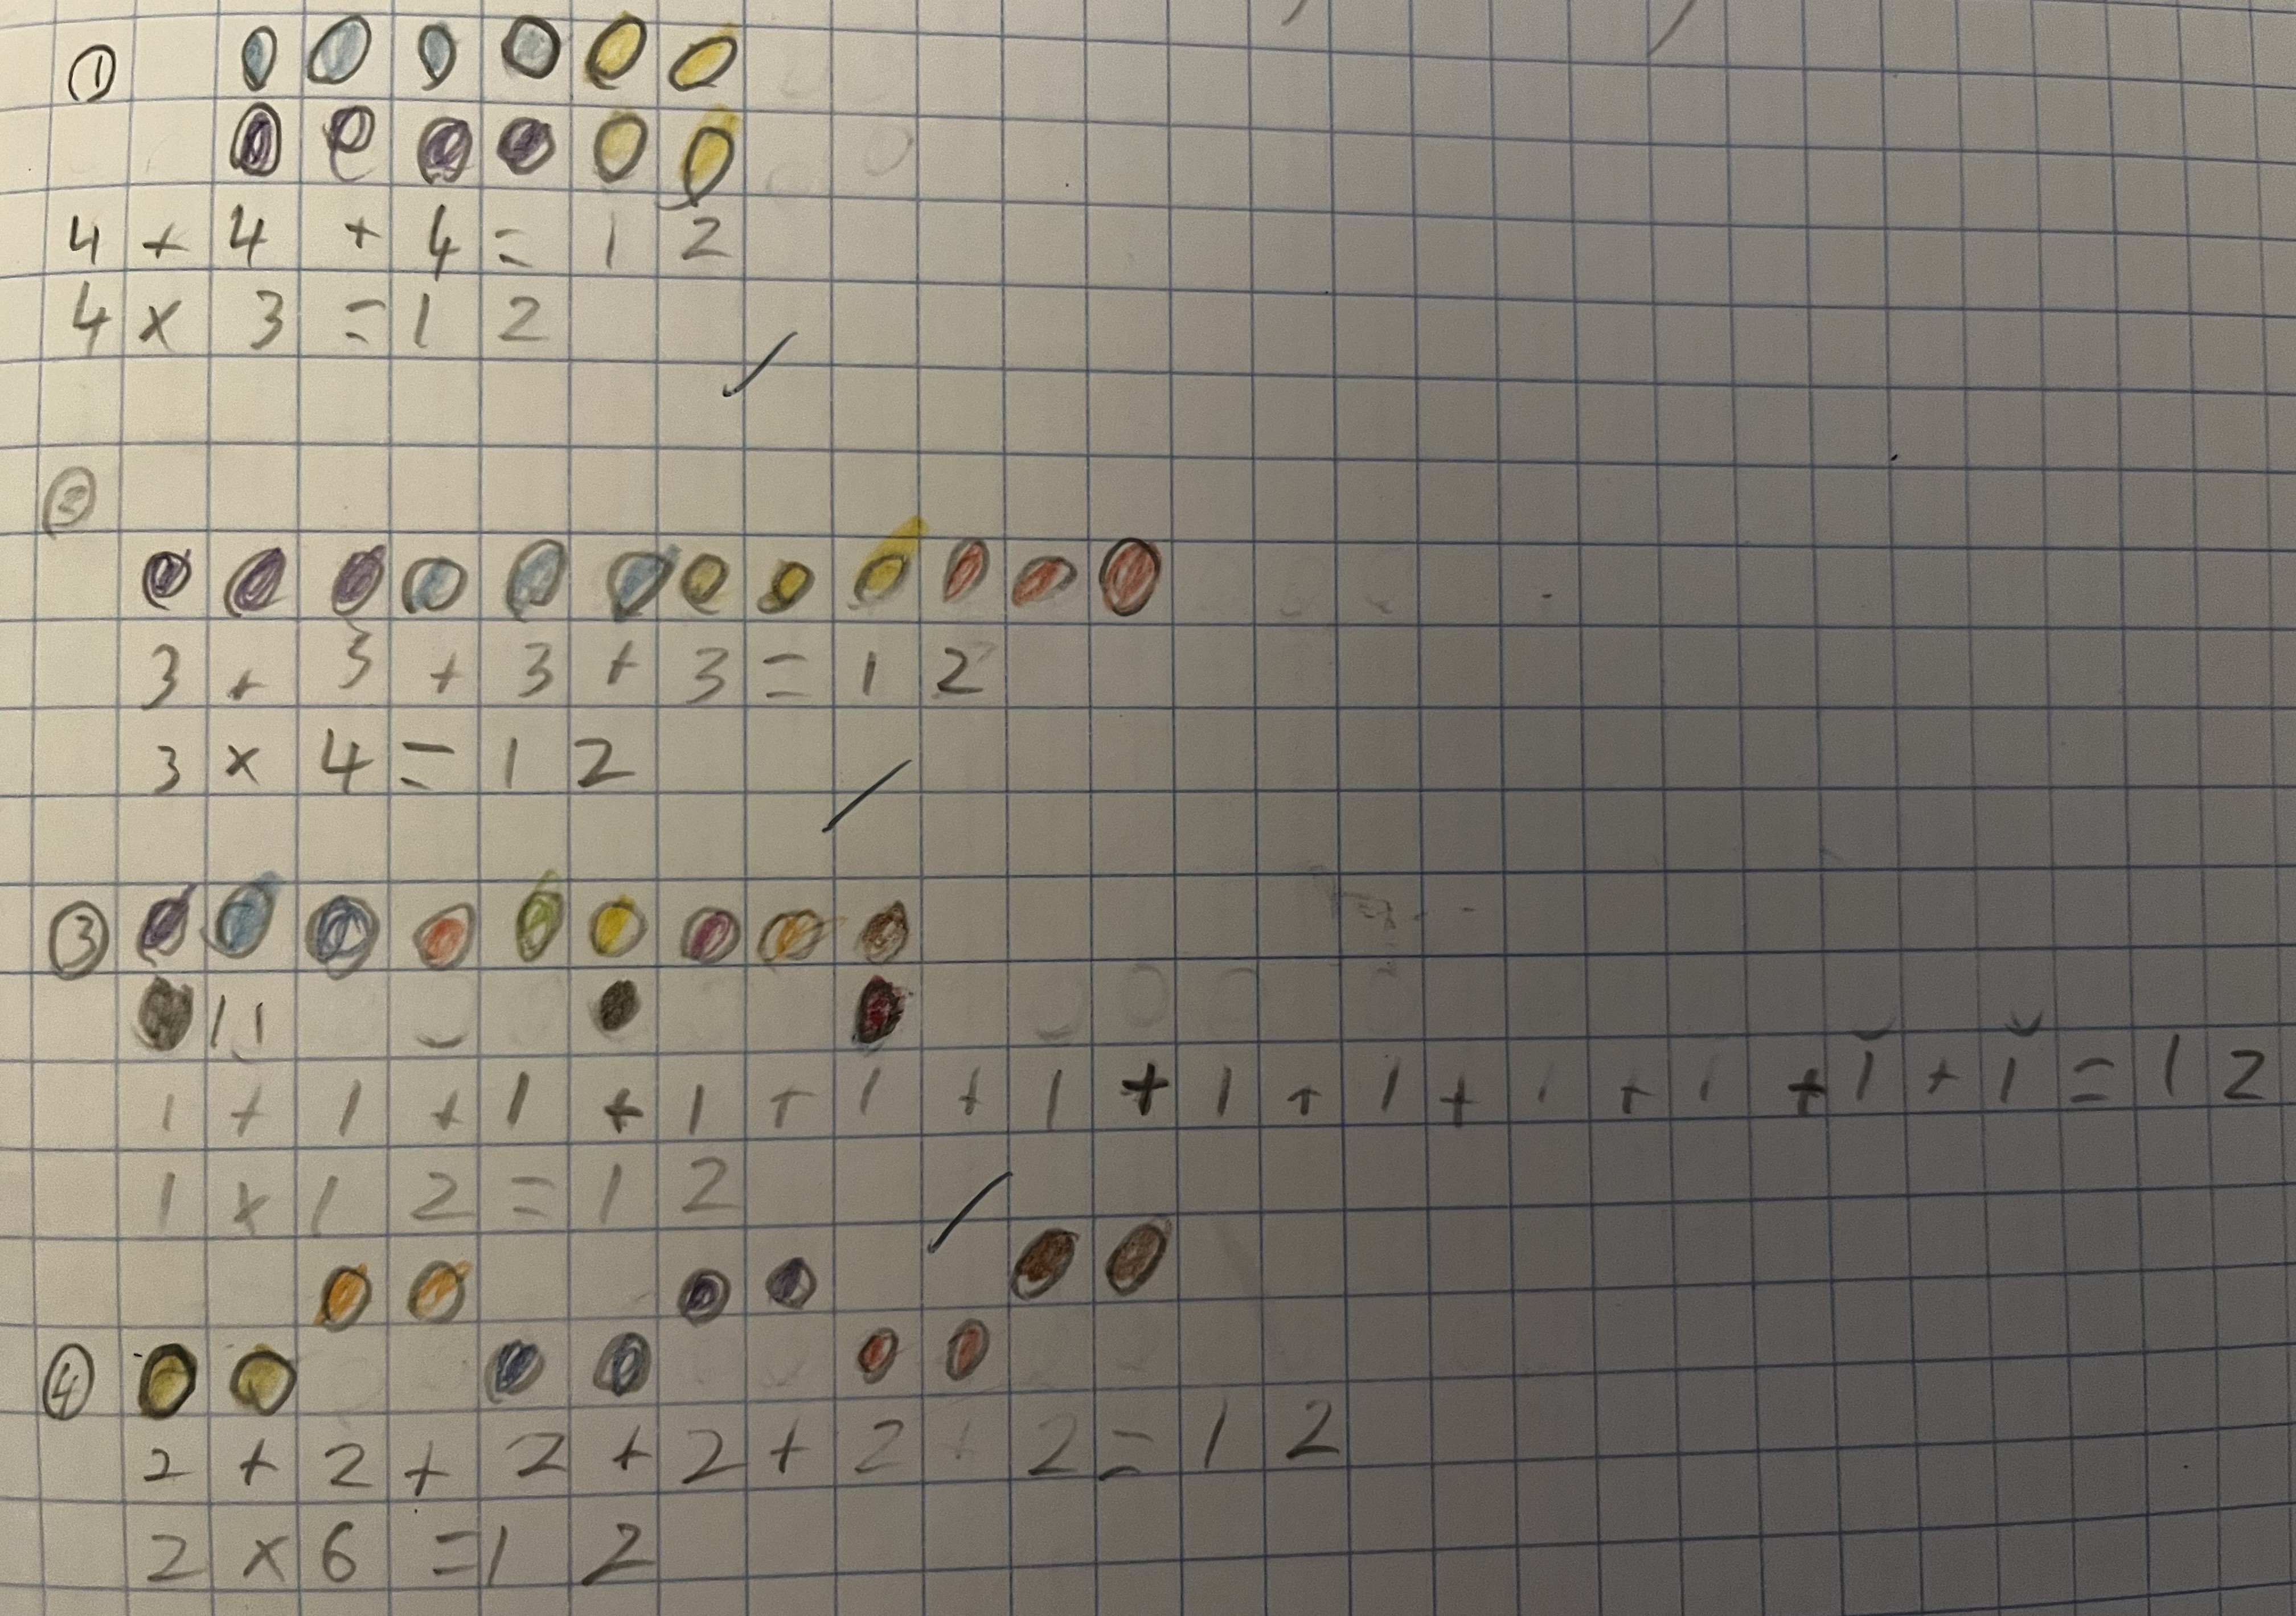 ①
4 + 4 + 4 = 12
4 × 3 = 12
②
3 + 3 + 3 + 3 = 12
3 × 4 = 12
③
1 + 1 + 1 + 1 + 1 + 1 + 1 + 1 + 1 + 1 + 1 + 1 = 12
1 × 12 = 12
④
2 + 2 + 2 + 2 + 2 + 2 = 12
2 × 6 = 12